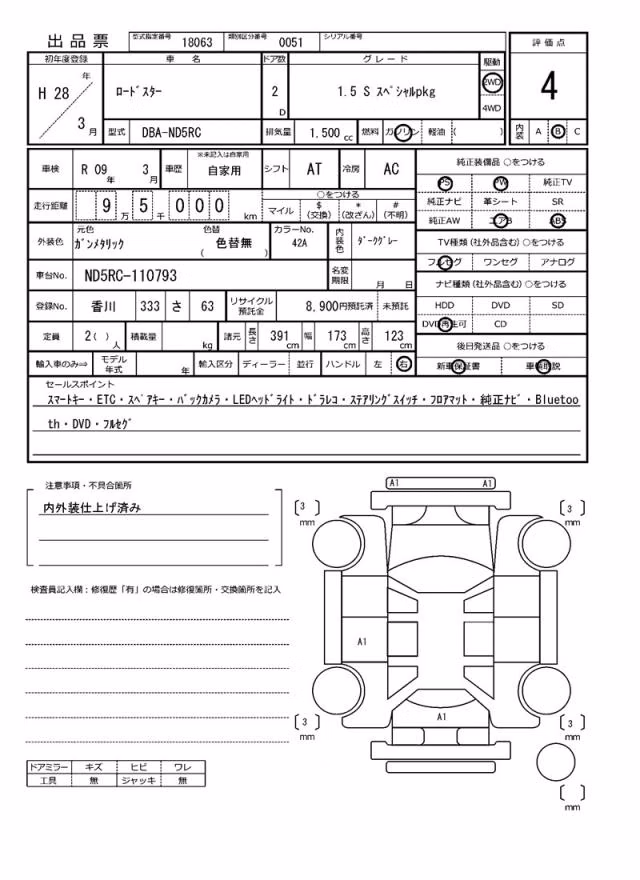 出品票 型式指定番号 18063 類別区分番号 0051 シリアル番号
評価点
4
内装 A B C
初年度登録 車名 ドア数 グレード 駆動
H 28 年 3 月
ロードスター
2 D
1.5 S スペシャルpkg
2WD
4WD
型式 DBA-ND5RC 排気量 1.500 cc 燃料 ガソリン 軽油 ( )
車検 R 09 年 3 月 車歴 ※未記入は自家用 自家用 シフト AT 冷房 AC
走行距離 9 万 5 千 0 0 0 km
○をつける
マイル $ (交換) * (改ざん) # (不明)
外装色 元色 ガンメタリック 色替 ( 色替無 ) カラーNo. 42A 内装色 ダークグレー
車台No. ND5RC-110793 名変期限 月 日
登録No. 香川 333 さ 63 リサイクル預託金 8,900円預託済 未預託
定員 2( ) 人 積載量 kg 諸元 長さ 391 cm 幅 173 cm 高さ 123 cm
輸入車のみ⇒ モデル年式 年 輸入区分 ディーラー 並行 ハンドル 左 右
純正装備品 ○をつける
PS PW 純正TV
純正ナビ 革シート SR
純正AW エアB ABS
TV種類 (社外品含む) ○をつける
フルセグ ワンセグ アナログ
ナビ種類 (社外品含む) ○をつける
HDD DVD SD
DVD再生可 CD
後日発送品 ○をつける
新車保証書 車輌取説
セールスポイント
スマートキー・ETC・スペアキー・バックカメラ・LEDヘッドライト・ドラレコ・ステアリングスイッチ・フロアマット・純正ナビ・Bluetoo
th・DVD・フルセグ
注意事項・不具合箇所
内外装仕上げ済み
検査員記入欄:修復歴「有」の場合は修復箇所・交換箇所を記入
ドアミラー キズ ヒビ ワレ
工具 無 ジャッキ 無
A1 A1
[ 3 ] mm
[ 3 ] mm
A1
A1
[ 3 ] mm
[ 3 ] mm
[ ] mm